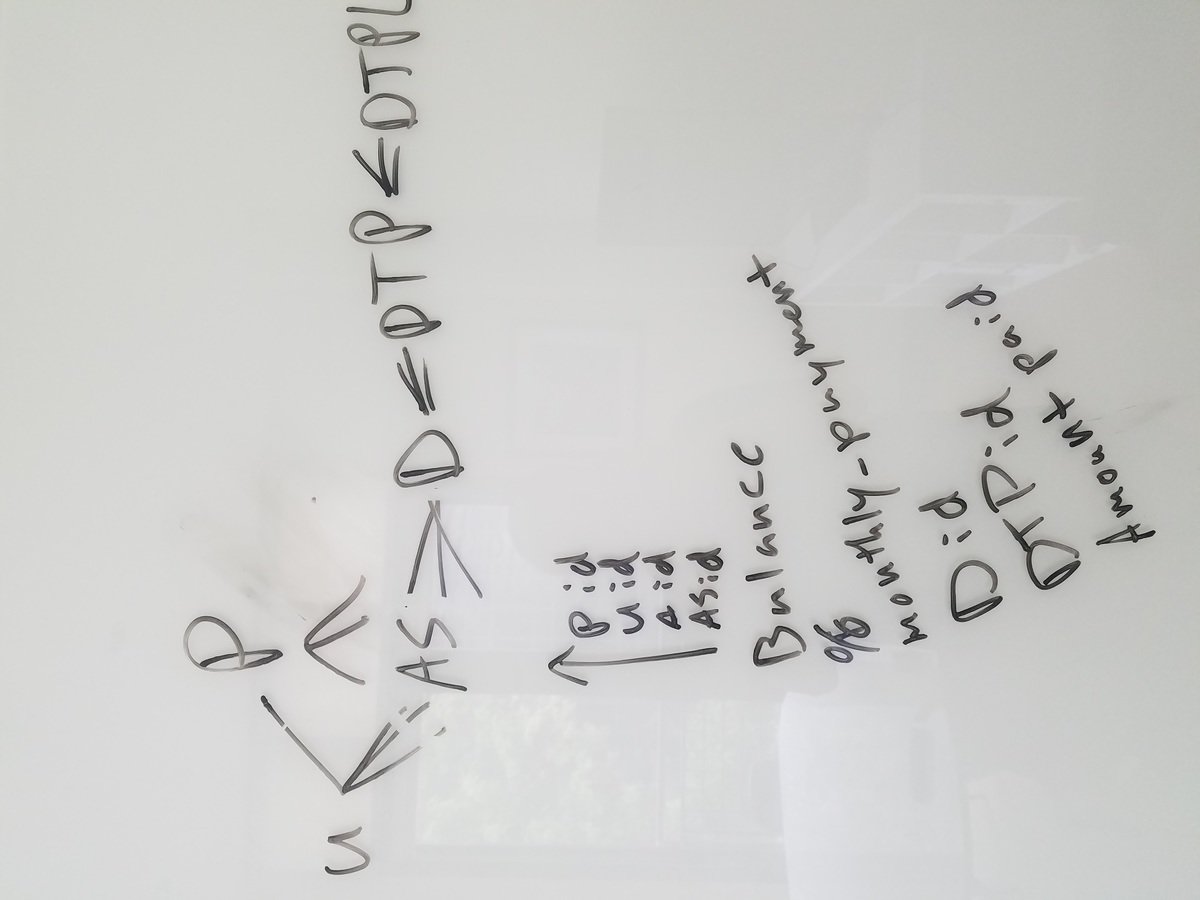 P
u
AS D DTP DTPL
P id
u id
A id
ASid
Balance
%
monthly-payment
Did
DTPid
Amount paid